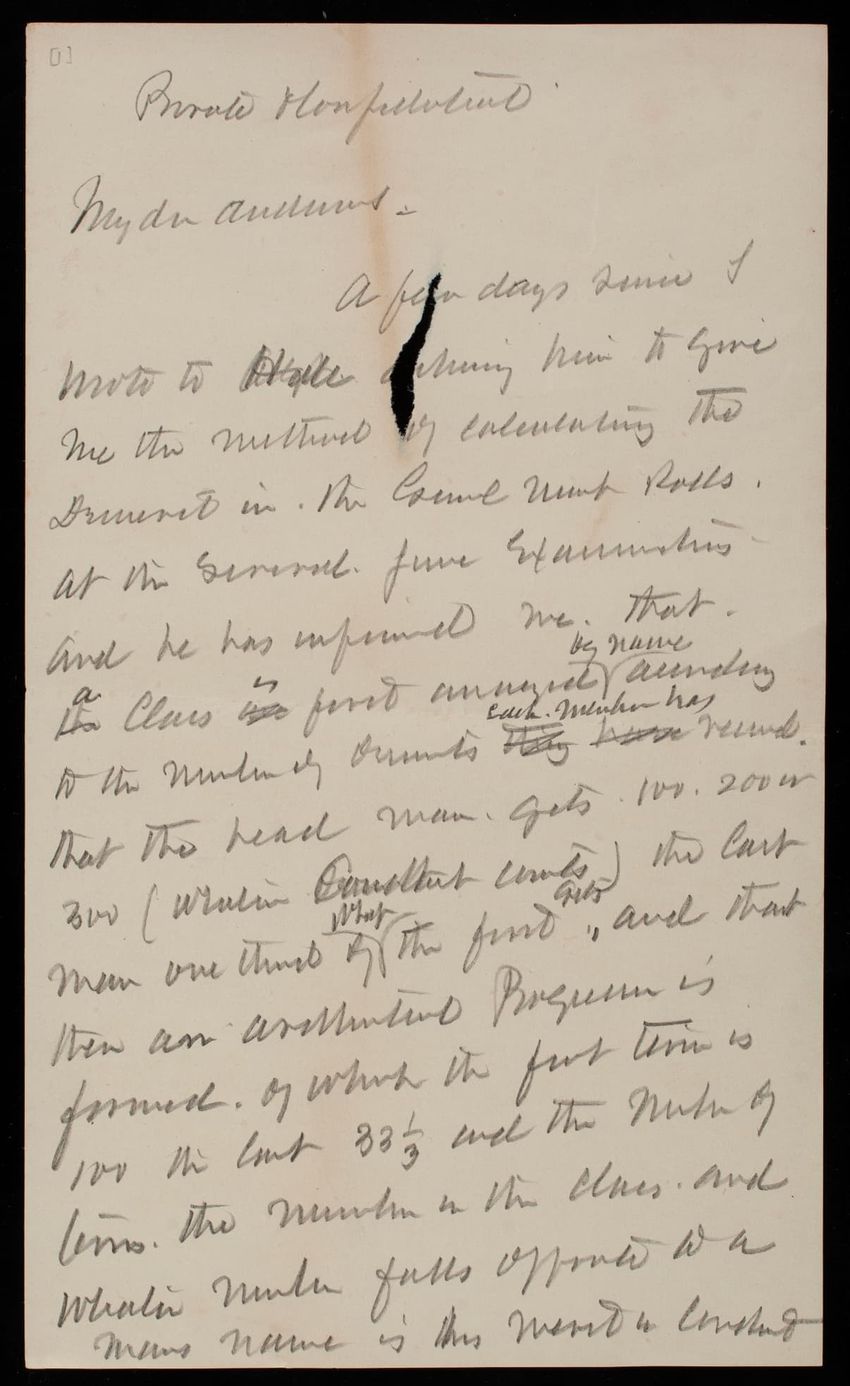 [1]
Private & Confidential
My dr Andrews.
A few days since I
wrote to asking him to give
me the method of calculating the
Demerit in the General Merit Rolls.
at the several June Examinations
and he has informed me. that.
by name
a is
the Class are first arranged according
each member has
to the number of demerits they have received.
that the head man. gets. 100. 200 or
300 ( whatever Conduct counts ) the last
what gets
man one third of the first " and that
then an arithmetical Progression is
formed. of which the first term is
100 the last 33 1/3 and the number of
terms. the number in the class. and
whatever number falls opposite to a
mans name is his merit in Conduct